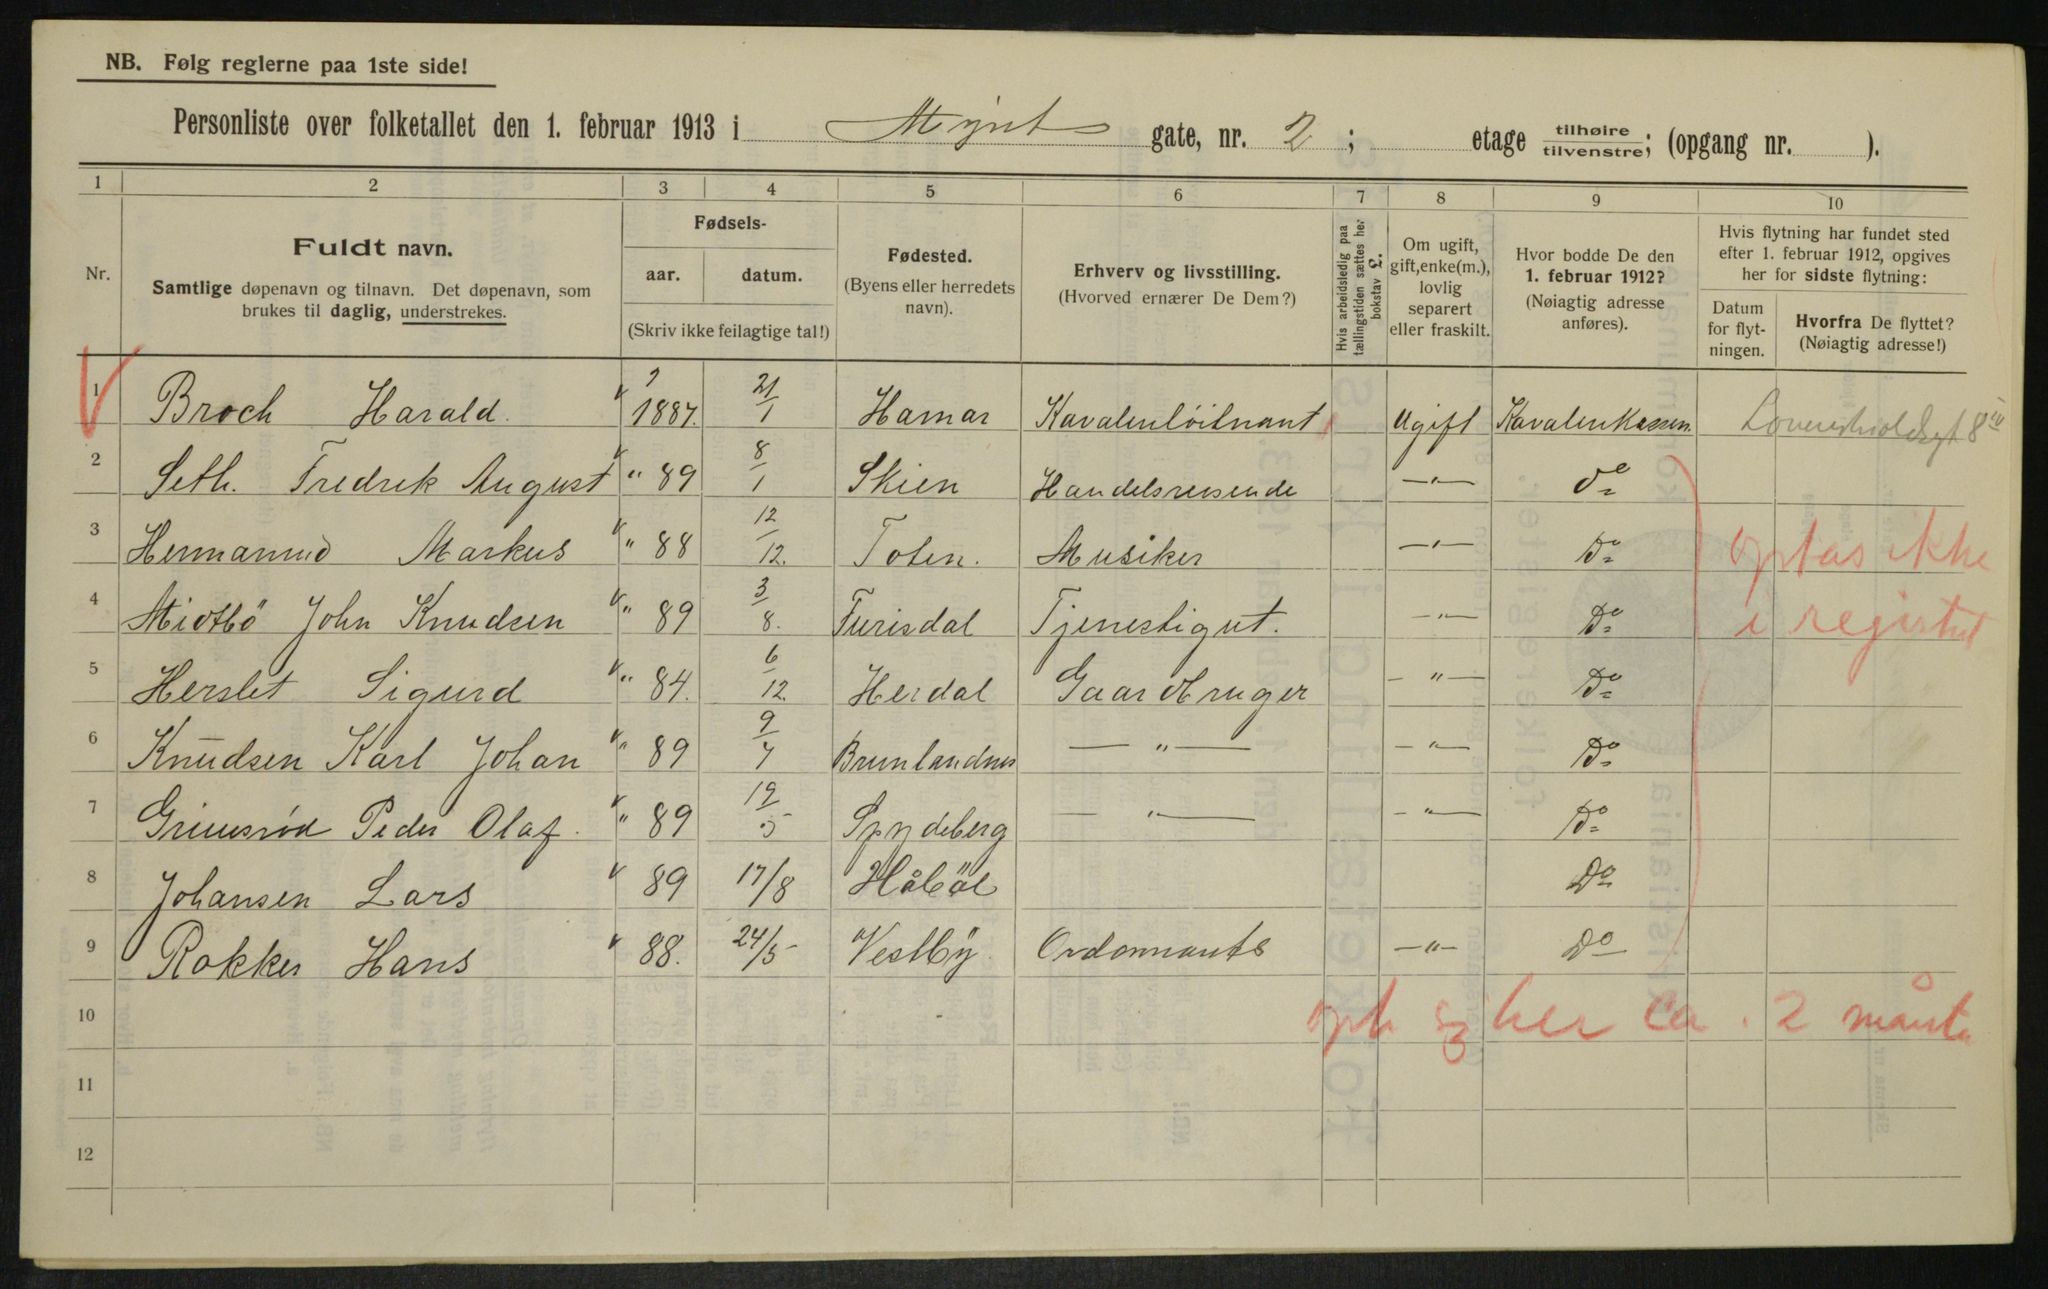 NB. Følg reglerne paa 1ste side!
Personliste over folketallet den 1. februar 1913 i Mynt gate, nr. 2 ; etage tilhøire/tilvenstre; (opgang nr. ).
1 2 3 4 5 6 7 8 9 10
Nr.
Fuldt navn.
Samtlige døpenavn og tilnavn. Det døpenavn, som
brukes til daglig, understrekes.
Fødsels-
aar. datum.
(Skriv ikke feilagtige tal!)
Fødested.
(Byens eller herredets
navn).
Erhverv og livsstilling.
(Hvorved ernærer De Dem?)
Hvis arbeidsledig paa
tællingstiden sættes her
bokstav L.
Om ugift,
gift, enke(m.),
lovlig
separert
eller fraskilt.
Hvor bodde De den
1. februar 1912?
(Nøiagtig adresse
anføres).
Hvis flytning har fundet sted
efter 1. februar 1912, opgives
her for sidste flytning:
Datum
for flyt-
ningen.
Hvorfra De flyttet?
(Nøiagtig adresse!)
1 Broch Harald. 1887. 21/1 Hamar Kavaleriløitnant Ugift Løvenskioldsgt 8 IV
2 Seth. Fredrek August " 89 8/1 Skien Handelsreisende —"— do
3 Hermanrud Markus " 88 12/12. Toten. Musiker —"— Do
4 Midtbö John Knudsen " 89 3/8. Tjenestegut. —"— Do
5 Herslet Sigurd " 84. 6/12. Herdal Gaardbruger —"— Do
6 Knudsen Karl Johan " 89 9/7 Brunlandnes —"— —"— Do
7 Grimsrød Peder Olaf. " 89 19/5 Spydeberg —"— —"— Do
8 Johansen Lars 89 17/8 Håböl Do
9 Rokker Hans 88. 24/5 Vestby Ordonnants —"— Do
10
11
12
optas ikke
i registret
oph sig her ca. 2 månter